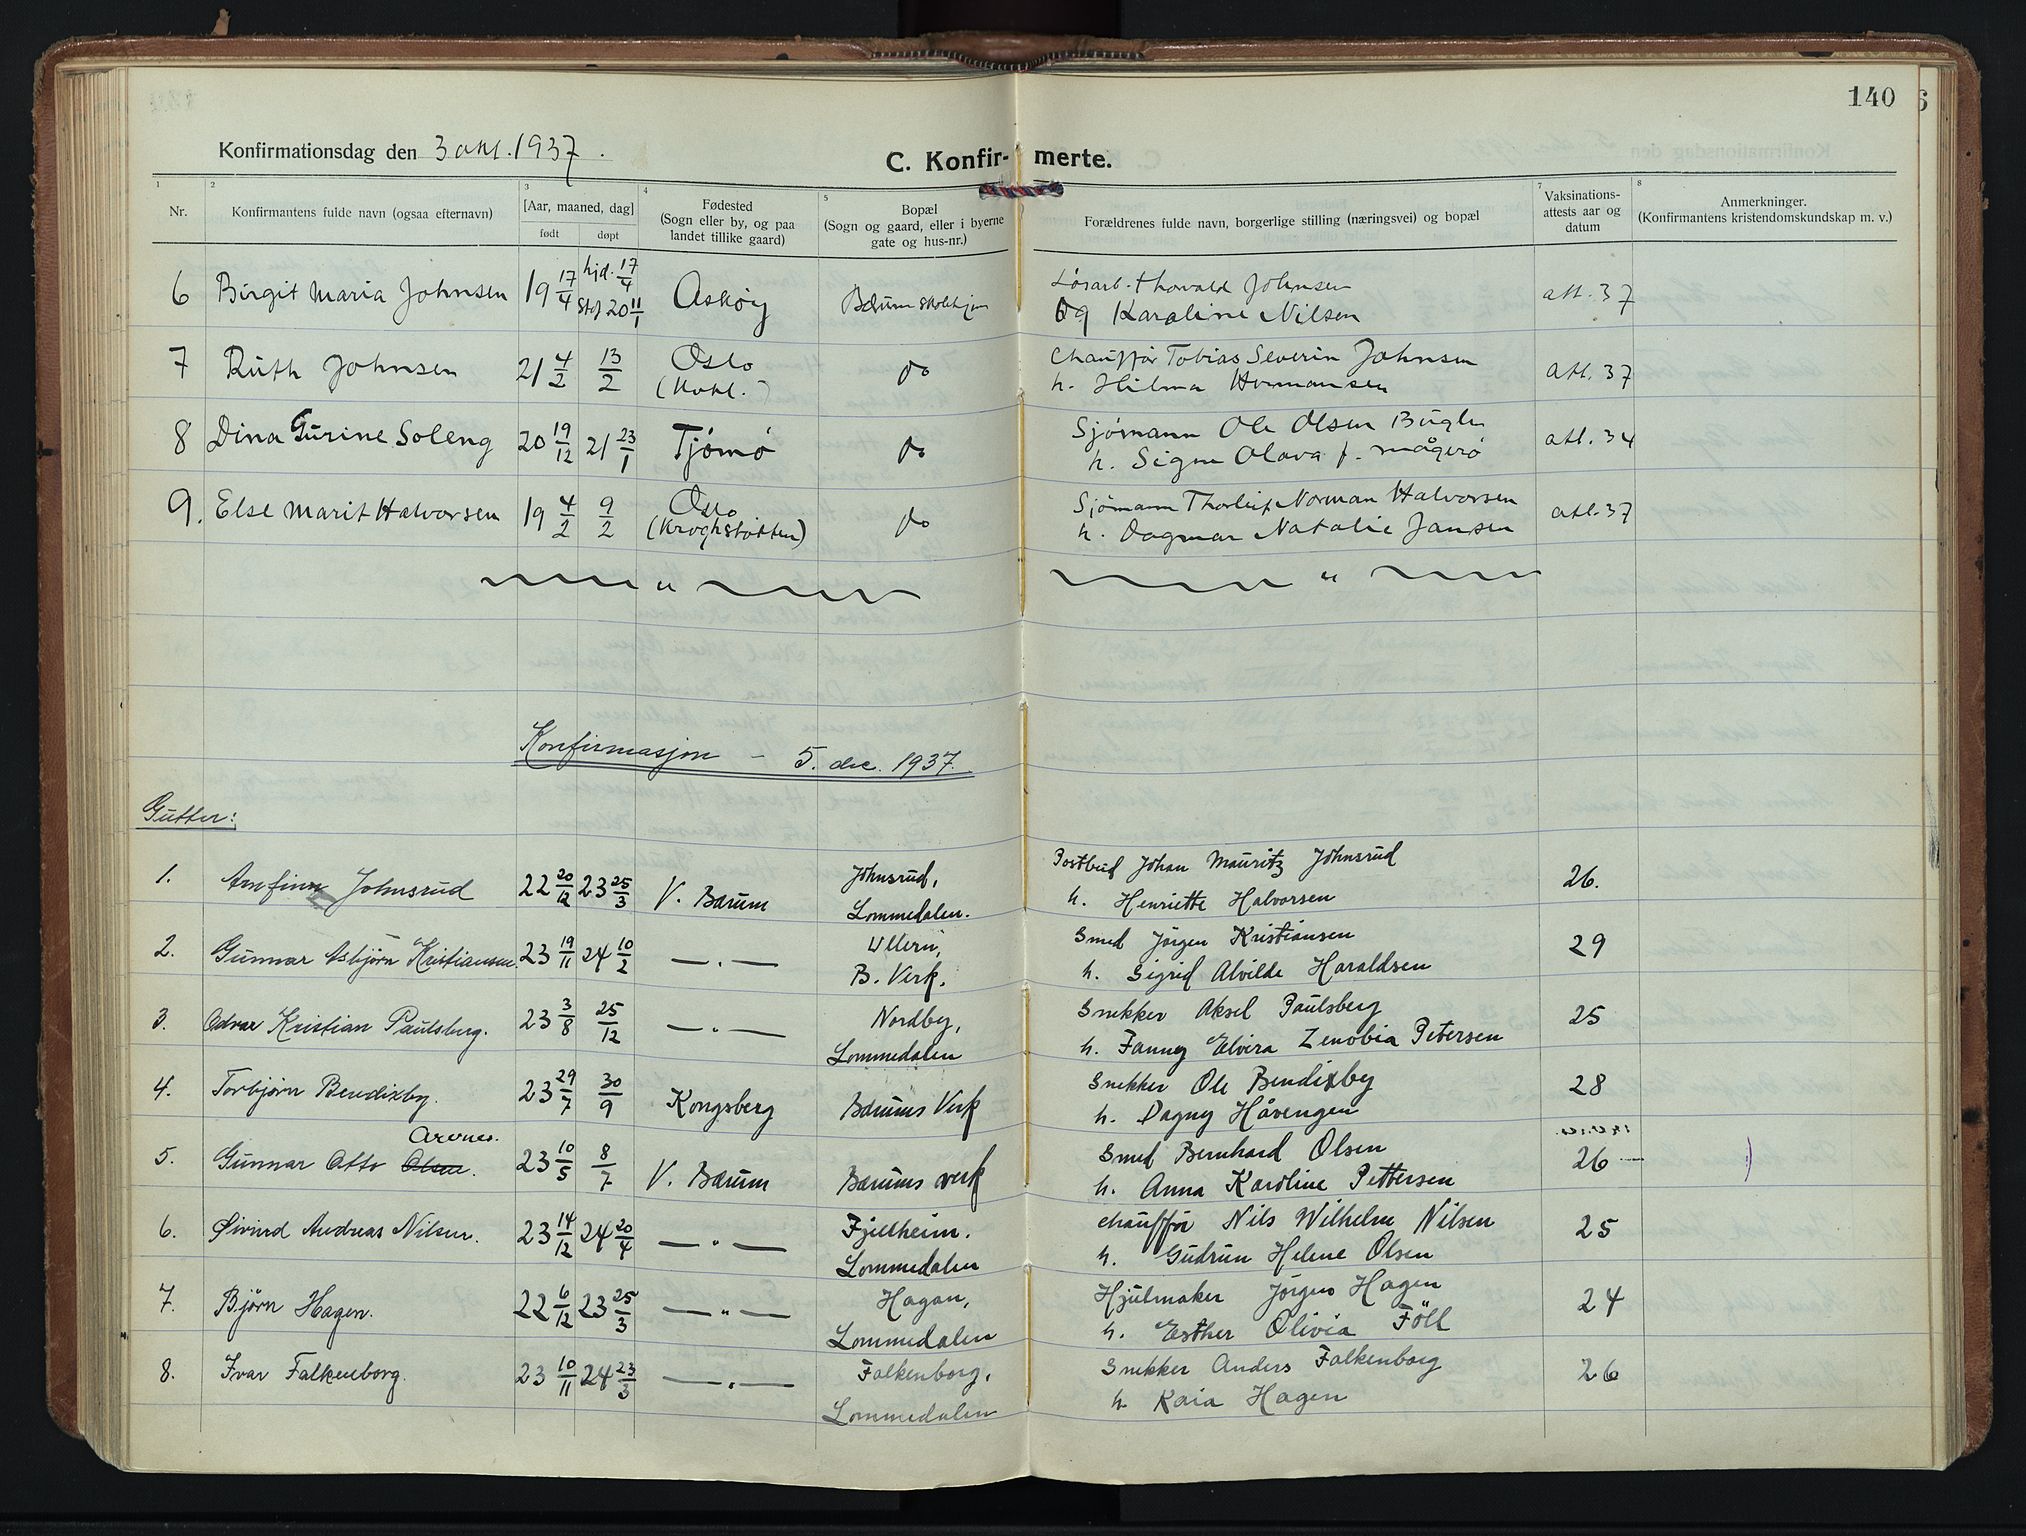 140
Konfirmationsdag den 3 okt. 1937.
C. Konfir- merte.
1 2 3 4 5 7 8
Nr.
Konfirmantens fulde navn (ogsaa efternavn)
[Aar, maaned, dag]
født døpt
Fødested
(Sogn eller by, og paa
landet tillike gaard)
Bopæl
(Sogn og gaard, eller i byerne
gate og hus-nr.)
Forældrenes fulde navn, borgerlige stilling (næringsvei) og bopæl
Vaksinations-
attests aar og
datum
Anmerkninger.
(Konfirmantens kristendomskundskap m. v.)
6 Birgit Maria Johnsen 19 17/4 hjd. 17/4 Askøy Bærum skolehjem Løsarb. Thorvald Johnsen att. 37
stf 20 11/1 og Karoline Nilsen
7 Ruth Johnsen 21 4/2 13/2 Oslo do Chauffør Tobias Severin Johnsen att. 37
h. Hilma Hermansen
8 Dina Gurine Soleng 20 19/12 21 23/1 Tjømø do Sjømann Ole Olsen att. 34
h. Signe Olava f. Mågerø
9. Else Marit Halvorsen 19 4/2 9/2 Oslo do Sjømann Thorleif Norman Halvorsen att. 37
(Krohgstøtten) h. Dagmar Natalie Jansen
" "
Konfirmasjon - 5. dec. 1937.
Gutter:
1. Arnfinn Johnsrud 22 20/12 23 25/3 V. Bærum Johnsrud, Postbud Johan Mauritz Johnsrud 26.
Lommedalen. h. Henriette Halvorsen
2. Gunnar Asbjørn Kristiansen 23 19/11 24 10/2 —"— Ullern, Smed Jørgen Kristiansen 29
B. Verk. h. Sigrid Alvilde Haraldsen
3. Odvar Kristian Paulsberg. 23 3/8 25/12 —"— Nordby, Snekker Aksel Paulsberg 25
Lommedalen h. Fanny Elvira Zenobia Petersen
4. Torbjørn Bendixby. 23 29/7 30/9 Kongsberg Bærums Verk Snekker Ole Bendixby 28
h. Dagny Håvengen
Arenes.
5. Gunnar Otto Olsen. 23 10/5 8/7 V. Bærum Bærums verk Smed Bernhard Olsen 26 —
h. Anna Karoline Pettersen
6. Øivind Andreas Nilsen. 23 14/12 24 20/4 —"— Fjellheim. chauffør Nils Wilhelm Nilsen 25
Lommedalen h. Gudrun Helene Olsen
7. Bjørn Hagen. 22 6/12 23 25/3 —"— Hagan, Hjulmaker Jørgen Hagen 24
Lommedalen h. Esther Olivia Föll
8. Ivar Falkenborg. 23 10/11 24 23/3 —"— Falkenborg, Snekker Anders Falkenborg 26
Lommedalen h. Kaia Hagen